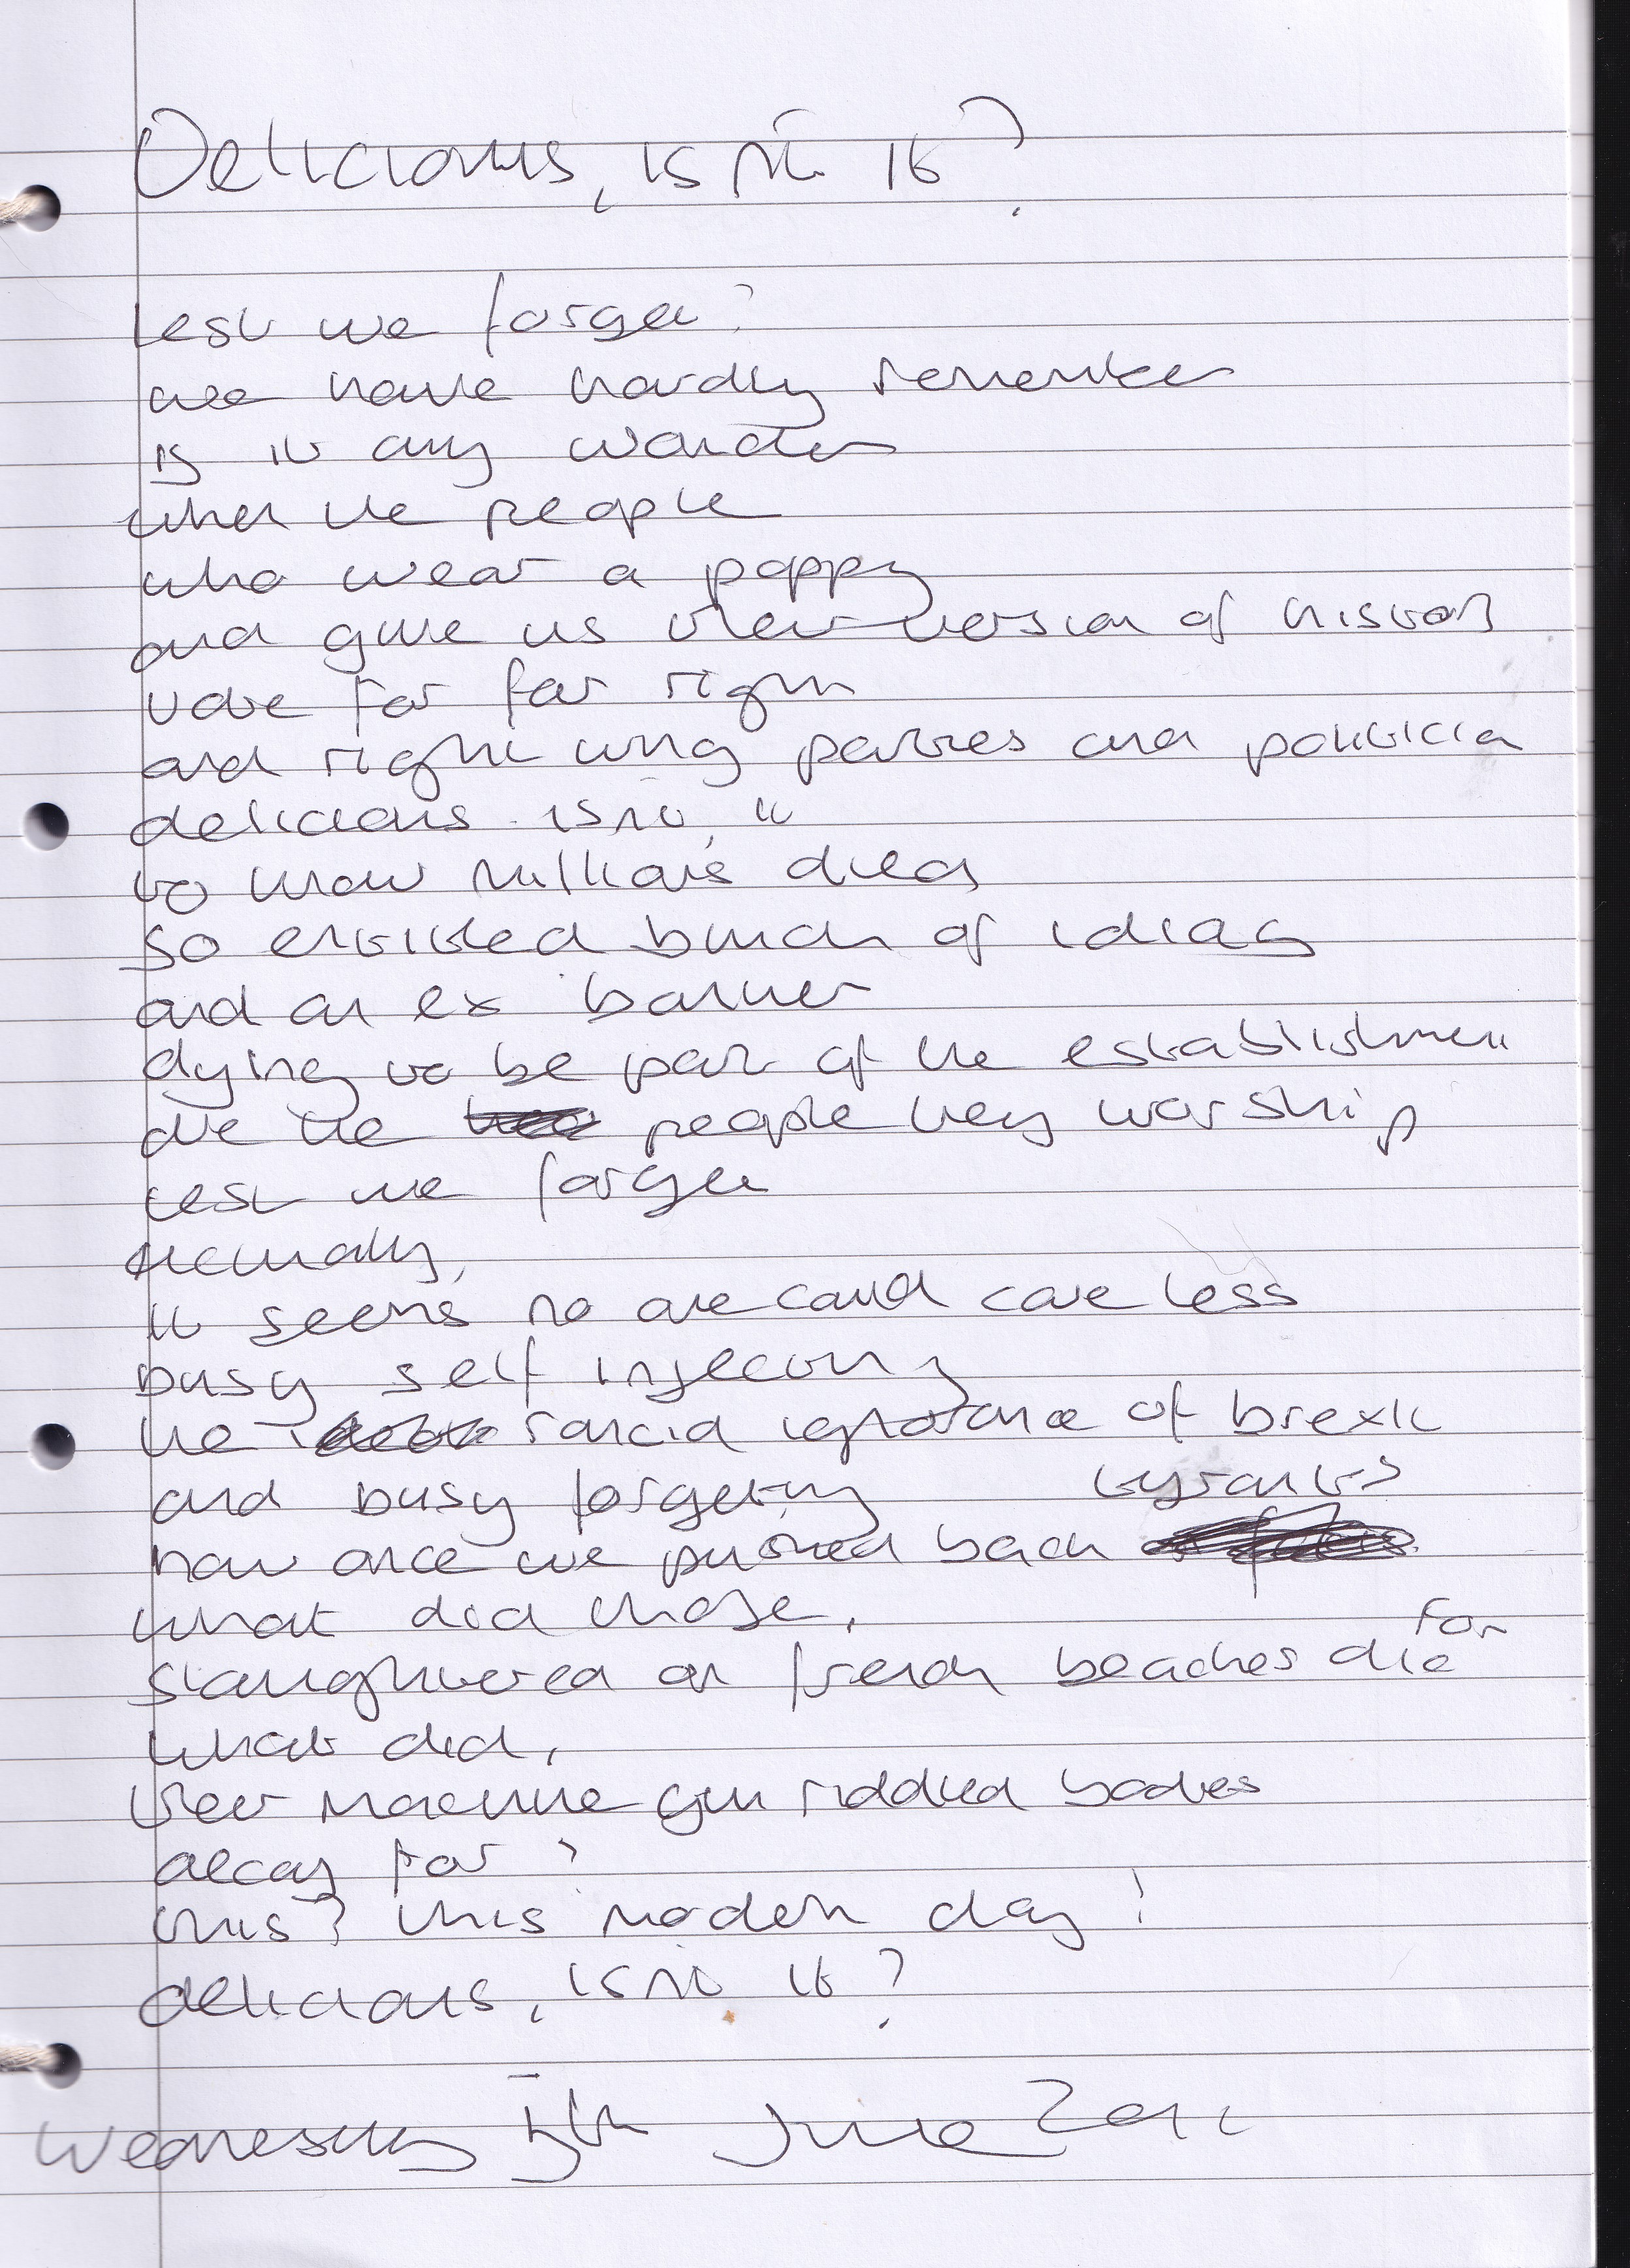 Delicious, isn't it?
lest we forget?
we have hardly remember
is it any wonder
when the people
who wear a poppy
and give us their version of history
vote for far right
and right wing parties and politicia
delicious isn't, it
to know millions died
so entitled bunch of idiots
and an ex banker
dying to be part of the establishment
are the people they worship
lest we forget
actually,
it seems no one could care less
busy self injecting
the rancid ignorance of brexit
and busy forgetting
how once we pushed back tyrants
what did those,
slaughtered on french beaches die for
what did,
their machine gun riddled bodies
decay for?
this? this modern day!
delicious, isn't it?
Wednesday 5th June